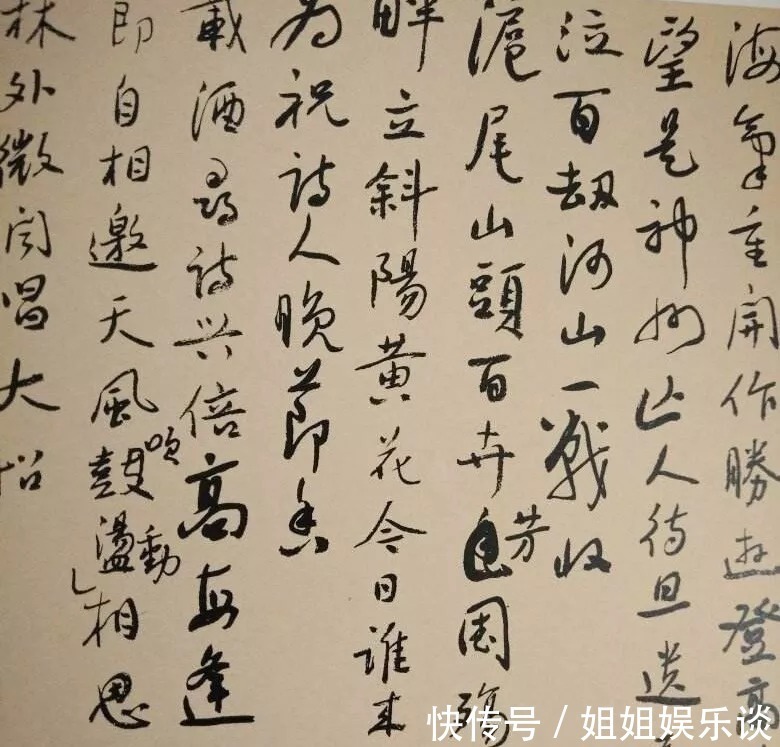 海重開作勝遊登高
望是神州人待旦遺
泣百劫河山一戰收
滬尾山頭百卉芳国殤
畔立斜陽黄花今日誰来
为祝詩人晚節香
載酒尋詩兴倍高每逢
即自相邀天風鼓盪相思
吹動
林外微闻唱大招
快传号 / 姐姐娱乐谈